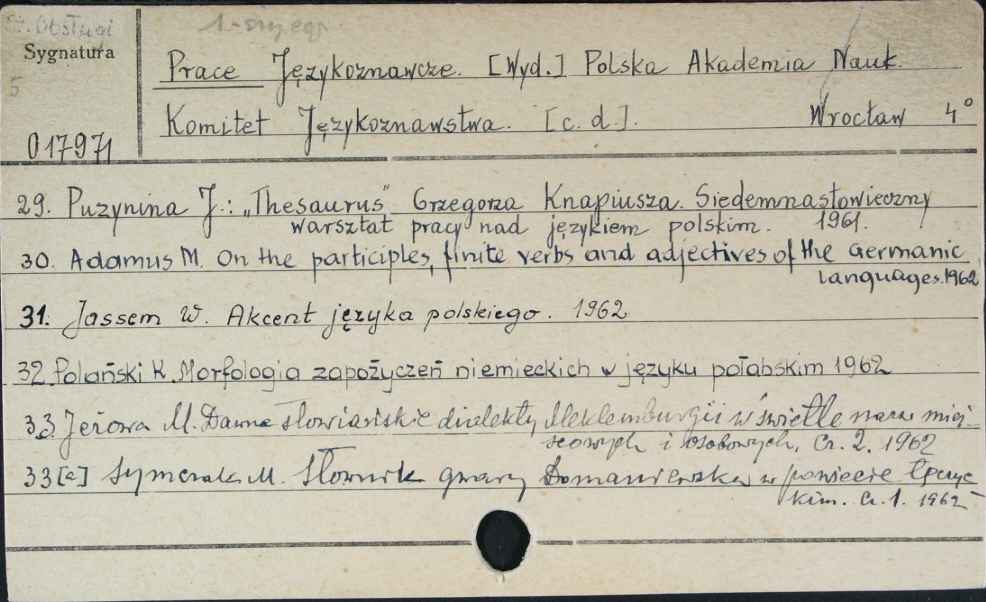 Obsługi
1-szy egz.
Sygnatura
5
017971
Prace Językoznawcze. [Wyd.] Polska Akademia Nauk.
Komitet Językoznawstwa. [c. d.]. Wrocław 4°
29. Puzynina J.: „Thesaurus" Grzegorza Knapiusza. Siedemnastowieczny
warsztat pracy nad językiem polskim. 1961.
30. Adamus M. On the participles, finite verbs and adjectives of the Germanic
languages. 1962
31. Jassem W. Akcent języka polskiego. 1962
32 Polański K. Morfologia zapożyczeń niemieckich w języku połabskim 1962
33. Jeżowa M. Dawne słowiańskie dialekty Meklemburgii w świetle nazw miej-
scowych i osobowych, Cz. 2. 1962
33[a] Szymczak M. Słownik gwary Domaniewska w powiecie łęczyc-
kim. Cz. 1. 1962